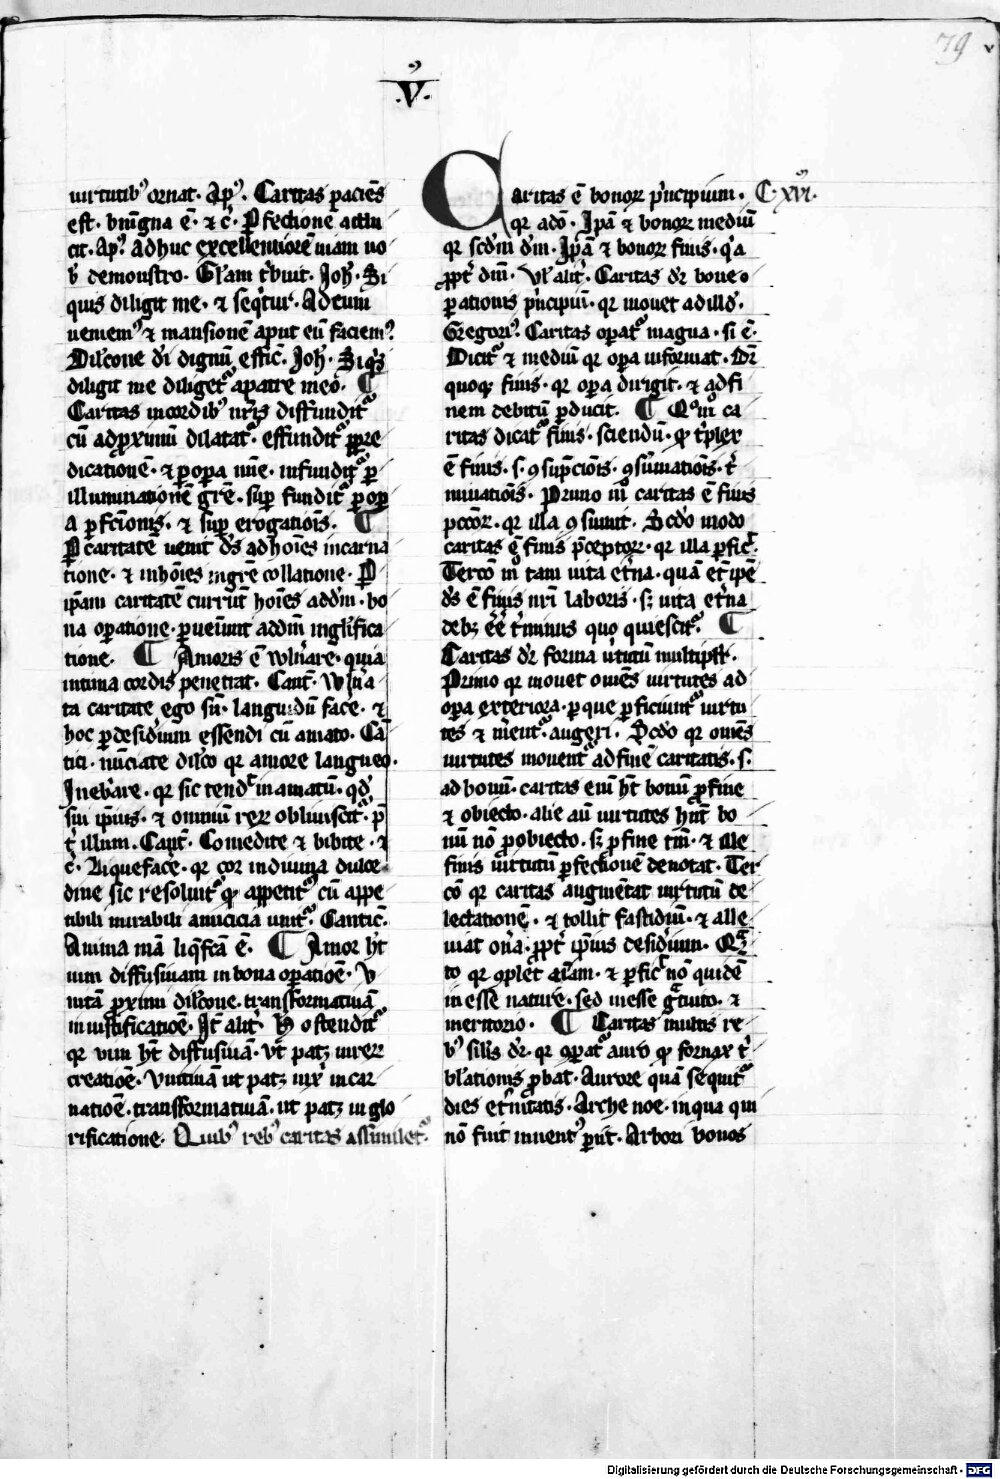 79
.V.
uirtutibꝰ ornat. Apꝰ. Caritas paciēs
est. bnīgna ē. ⁊ c̄. Ꝑfectione attin
cit. Apꝰ. adhuc excellentiorē uiam uo
b̓ demonstro. Gl̓am tͥbuit. Joh̓. Si
quis diligit me. ⁊ seqͥtur. Ad eum
ueniemꝰ ⁊ mansionē aput eū faciemꝰ
diligit me diligetᷣ a patre meo. ¶
Caritas in cordibꝰ nr̄is diffunditᷣ
cū ad ꝓximū dilatatᷣ. effunditᷣ ꝑ p̄re
dicationē. ⁊ ꝑ oꝑa
illuminationē gr̄e. suꝑ funditᷣ ꝑ oꝑ
a ꝑfc̄ionis. ⁊ suꝑ erogatiōis. ¶
Ꝑ caritatē uenit d̓s ad hoīes incarna
tione. ⁊ in hoīes in gr̄e collatione. Ꝑ
ip̄am caritatē currūt hoīes ad dm̄. bo
na oꝑatione. ꝑueiunt ad dm̄ in gl̓ifica
tione. ¶ Amoris ē wln̓are. quia
intima cordis penetrat. Cant̓. wln̓a
ta caritate ego sū. languidū face. ⁊
hoc ꝑ desidium essendi cū amato. Cā
tici. nūciate dil̓co qꝛ amore langueo.
Inebͥare. qꝛ sic tendᷣ in amatū. qd̓
sui ip̄ius. ⁊ omniū reꝝ obliuiscitᷣ. p̄
t̓ illum. Cant̓. Comedite ⁊ bibite. ⁊
c̄. Liquefac̓e. qꝛ cor in diuina dulce
dine sic resoluitᷣ ꝙ appetitᷣ cū appe
tibili mirabili amicicia unitᷣ. Canticͣ.
Anima mā liq̄fcā ē. ¶ Amor h̄t
uim diffusiuam in bona oꝑatiōe. v
nitā ꝓximi dil̓cone. transformatiuā
in iustificatiōe. It̄ alit̓. H̓ ostenditᷣ
qꝛ uim h̄t diffusiuā. vt̄ patꝫ in reꝝ
creatiōe. Vnitiuā ut patꝫ in xͥ incar
natiōe. transformatiuā. ut patꝫ in glo
rificatione. Quibꝰ rebꝰ caritas assimiletᷣ.
Caritas ē bonoꝝ pͥncipium. C. xvi.
qꝛ a dō. Ip̄a ē bonoꝝ mediū
qꝛ scd̓m dm̄. Ip̄a ē bonoꝝ finis. qͥa
ꝓpt̓ dm̄. Vl̓ alit̓. Caritas d̓r bone
oꝑationis pͥncipiū. qꝛ mouet ad ill̓.
Gregoriꝰ. Caritas oꝑatᷣ magna. si ē.
Dicitᷣ ⁊ mediū qꝛ oꝑa informat. d̓r
quoqꝫ finis. qꝛ oꝑa dirigit. ⁊ ad fi
nem debitū ꝑducit. ¶ Qm̄ ca
ritas dicatᷣ finis. sciendū. ꝙ tͥplex
ē finis. s. ꝯsūpc̄iōis. ꝯsūmatiōis. t̓
minatiōis. Primo m̊ caritas ē finis
pcc̄oꝝ. qꝛ illa ꝯsumit. Scd̓o modo
caritas ē finis p̄ceptoꝝ. qꝛ illa ꝑficᷣ.
Tercō m̊ tam uita et̓na. quā et̄ ip̄e
d̓s ē finis nr̄i laboris. sꝫ uita et̓na
debꝫ ee̓ t̓minus quo quiescitᷣ. ¶
Caritas d̓r forma uͥtutū multipl̓r.
Primo qꝛ mouet omēs uirtutes ad
oꝑa exteriora. ꝑ que ꝑficiuntᷣ uirtu
tes ⁊ m̓entᷣ augeri. Scd̓o qꝛ omēs
uirtutes mouentᷣ ad finē caritatis. s.
ad bonū. caritas eiū h̄t bonū ꝓ fine
⁊ obiecto. alie aū uirtutes hn̄t bo
nū nō ꝓ obiecto. sꝫ ꝓ fine tm̄. ⁊ ille
finis uirtutū ꝑfectionē denotat. Ter
cō qꝛ caritas augmētat uirtutū de
lectationē. ⁊ tollit fastidiū. ⁊ alle
uiat on̓a. ꝓpt̓ ip̄ius desideͥium. Qͣr
to qꝛ ꝯplet aīam. ⁊ ꝑficᷣ nō quidē
in esse nature. sed in esse gͣtuito. ⁊
meritorio. ¶ Caritas multis re
bꝰ silis d̓r. qꝛ ꝯꝑatᷣ auro qꝛ fornax tͥ
bl̓ationis ꝓbat. Aurore quā sequitᷣ
dies et̓nitatis. Arche noe. in qua qui
nō fuit inuentꝰ ꝑiit. Arbori bonos
Digitalisierung gefördert durch die Deutsche Forschungsgemeinschaft - DFG